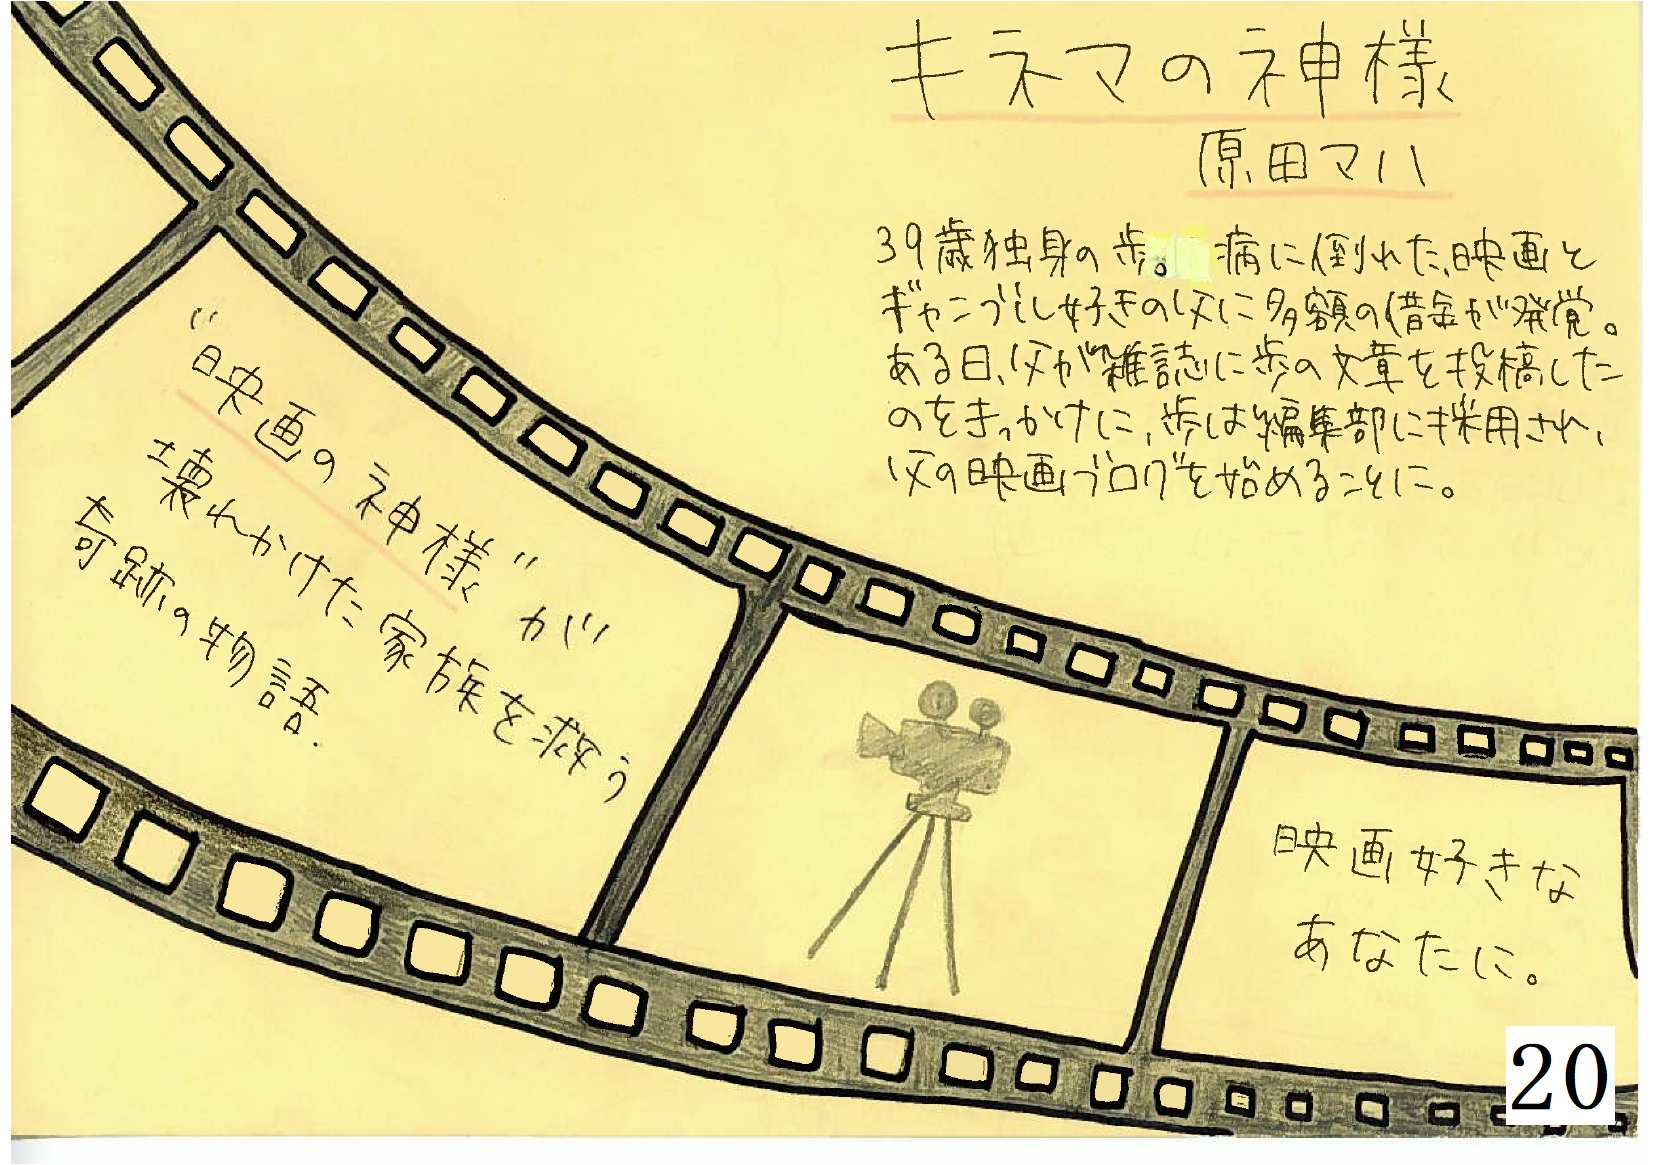 キネマの神様
原田マハ
39歳独身の歩。病に倒れた、映画と
ギャンブル好きの父に多額の借金が発覚。
ある日、父が雑誌に歩の文章を投稿した
のをきっかけに、歩は編集部に採用され、
父の映画ブログを始めることに。
"映画の神様"が
壊れかけた家族を救う
奇跡の物語.
映画好きな
あなたに。
20